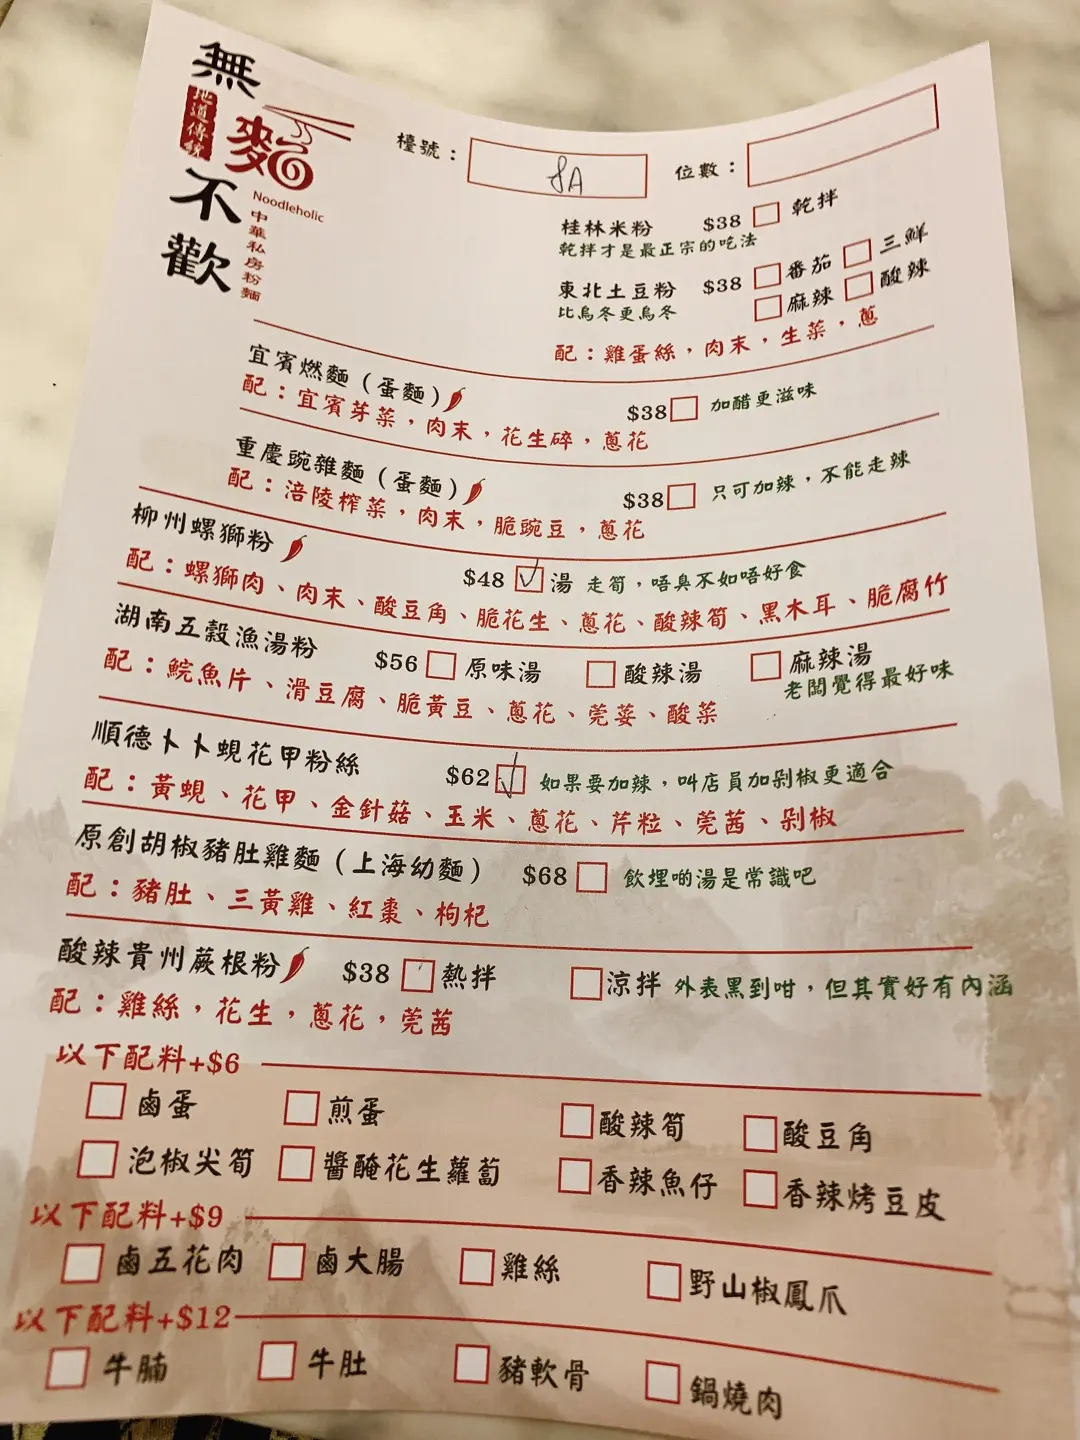 無麵不歡
地道傳統
Noodleholic
中華私房粉麵
檯號： 8A 位數：
桂林米粉 $38 乾拌
乾拌才是最正宗的吃法
東北土豆粉 $38 番茄 三鮮
比烏冬更烏冬 麻辣 酸辣
配：雞蛋絲，肉末，生菜，蔥
宜賓燃麵（蛋麵） $38 加醋更滋味
配：宜賓芽菜，肉末，花生碎，蔥花
重慶豌雜麵（蛋麵） $38 只可加辣，不能走辣
配：涪陵榨菜，肉末，脆豌豆，蔥花
柳州螺獅粉 $48 湯 走筍，唔臭不如唔好食
配：螺獅肉、肉末、酸豆角、脆花生、蔥花、酸辣筍、黑木耳、脆腐竹
湖南五穀漁湯粉 $56 原味湯 酸辣湯 麻辣湯
老闆覺得最好味
配：鯇魚片、滑豆腐、脆黃豆、蔥花、莞荽、酸菜
順德卜卜蜆花甲粉絲 $62 如果要加辣，叫店員加剁椒更適合
配：黃蜆、花甲、金針菇、玉米、蔥花、芹粒、莞茜、剁椒
原創胡椒豬肚雞麵（上海幼麵） $68 飲埋啲湯是常識吧
配：豬肚、三黃雞、紅棗、枸杞
酸辣貴州蕨根粉 $38 熱拌 涼拌 外表黑到咁，但其實好有內涵
配：雞絲，花生，蔥花，莞茜
以下配料+$6
鹵蛋 煎蛋 酸辣筍 酸豆角
泡椒尖筍 醬醃花生蘿蔔 香辣魚仔 香辣烤豆皮
以下配料+$9
鹵五花肉 鹵大腸 雞絲 野山椒鳳爪
以下配料+$12
牛腩 牛肚 豬軟骨 鍋燒肉